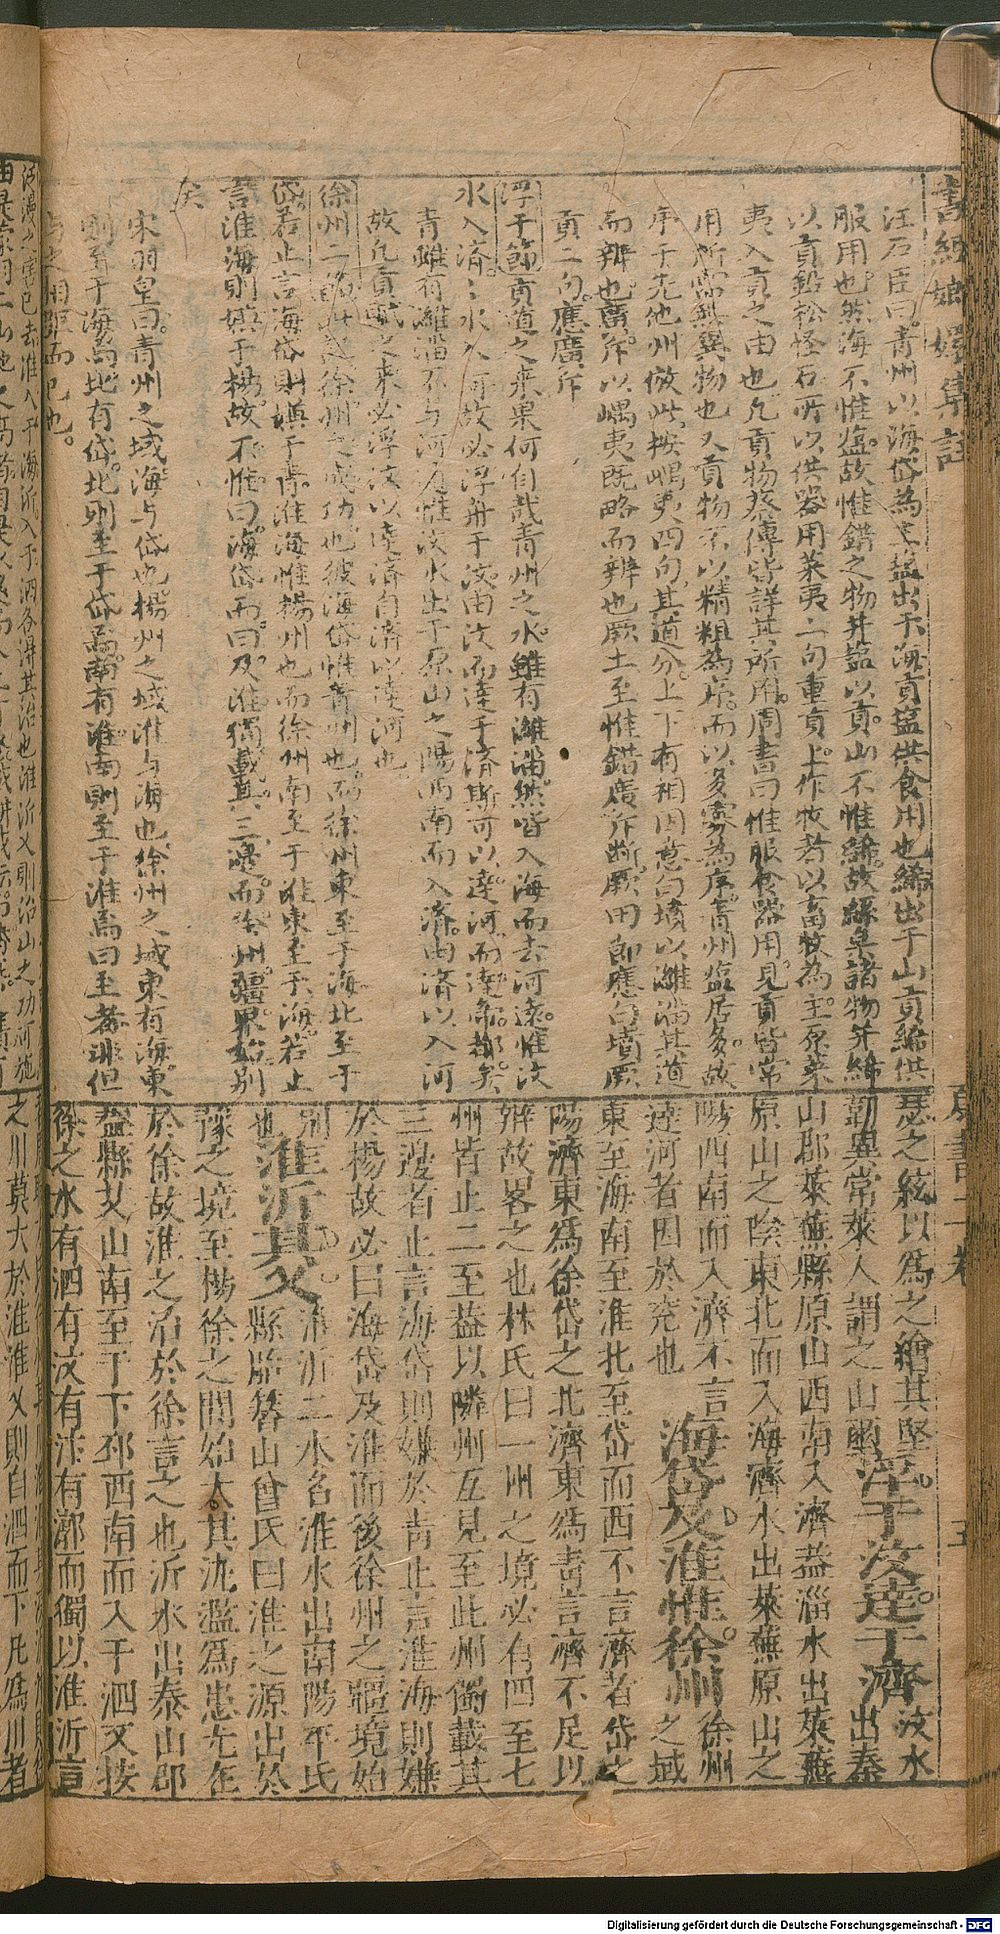 書經嫏嬛集註
夏書一卷
五
汪石臣曰青州以海岱為主塩出于海貢塩供食用也絺出于山貢絺供
服用也然海不惟塩故惟錯之物并塩以貢山不惟絺故絲枲諸物并絺
以貢鉛松怪石所以供器用萊夷二句重貢上作牧者以畜牧為主原萊
夷入貢之由也凡貢物蔡傳皆詳其所用周書曰惟服食器用見貢皆常
用所需無異物也又貢物不以精粗為序而以多寡為序青州塩居多故
序于先他州倣此按嵎夷四句其道分上下有相因意白墳以濰淄其道
而辨也廣斥以嵎夷既略而辨也厥土至惟錯廣斥断厥田節應白墳厥
貢二句應廣斥
浮于節貢道之来果何自哉青州之水雖有濰淄然皆入海而去河遠惟汶
水入済〻水入河故必浮舟于汶由汶而達于済斯可以達河而達帝都矣
青雖有濰淄不与河通惟汶水出于原山之陽西南而入済由済以入河
故凡貢賦之来必浮汶以達済自済以達河也
徐州二節此叙徐州之成功也彼海岱惟青州也而徐州東至于海北至于
岱若止言海岱則嫌于青淮海惟楊州也而徐州南至于淮東至于海若止
言淮海則嫌于楊故不惟曰海岱而曰及淮獨載其三邊而於州疆界始別
矣
宋羽皇曰青州之域海与岱也楊州之域淮与海也徐州之域東有海東
則至于海焉北有岱北則至于岱焉南有淮南則至于淮焉曰至者非但
与之相界而已也
瑟之絃以為之繒其堅
韌異常萊人謂之山繭
浮于汶達于濟
汶水
出泰
山郡萊蕪縣原山西南入濟葢淄水出萊蕪
原山之陰東北而入海濟水出萊蕪原山之
陽西南而入濟不言
達河者因於兗也
海岱及淮惟徐州
徐州
之域
東至海南至淮北至岱而西不言濟者岱之
陽濟東為徐岱之北濟東為青言濟不足以
辨故畧之也林氏曰一州之境必有四至七
州皆止二至葢以隣州互見至此州獨載其
三邊者止言海岱則嫌於青止言淮海則嫌
於楊故必曰海岱及淮而後徐州之疆境始
別
也
淮沂其乂
淮沂二水名淮水出南陽平氏
縣胎簪山曾氏曰淮之源出於
豫之境至楊徐之間始大其泛濫為患尤在
於徐故淮之治於徐言之也沂水出泰山郡
葢縣艾山南至于下邳西南而入于泗又按
徐之水有泗有汶有汴有漷而獨以淮沂言
河漫之害已去淮入于海沂入于泗各得其治也淮沂乂則治山之功可施
之川莫大於淮淮乂則自泗而下凡為川者
Digitalisierung gefördert durch die Deutsche Forschungsgemeinschaft - DFG